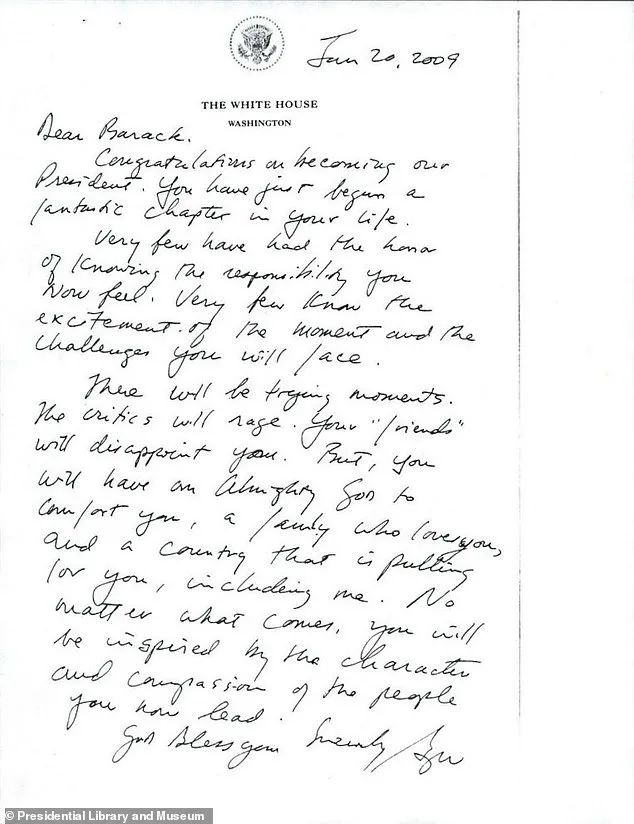 Jan 20, 2009
THE WHITE HOUSE
WASHINGTON
Dear Barack.
Congratulations on becoming our
President. You have just begun a
fantastic chapter in your life.
Very few have had the honor
of knowing the responsibility you
now feel. Very few know the
excitement of the moment and the
challenges you will face.
There will be trying moments.
The critics will rage. Your "friends"
will disappoint you. But, you
will have an Almighty God to
comfort you, a family who loves you,
and a country that is pulling
for you, including me. No
matter what comes, you will
be inspired by the character
and compassion of the people
you now lead.
God Bless you Sincerely,
© Presidential Library and Museum